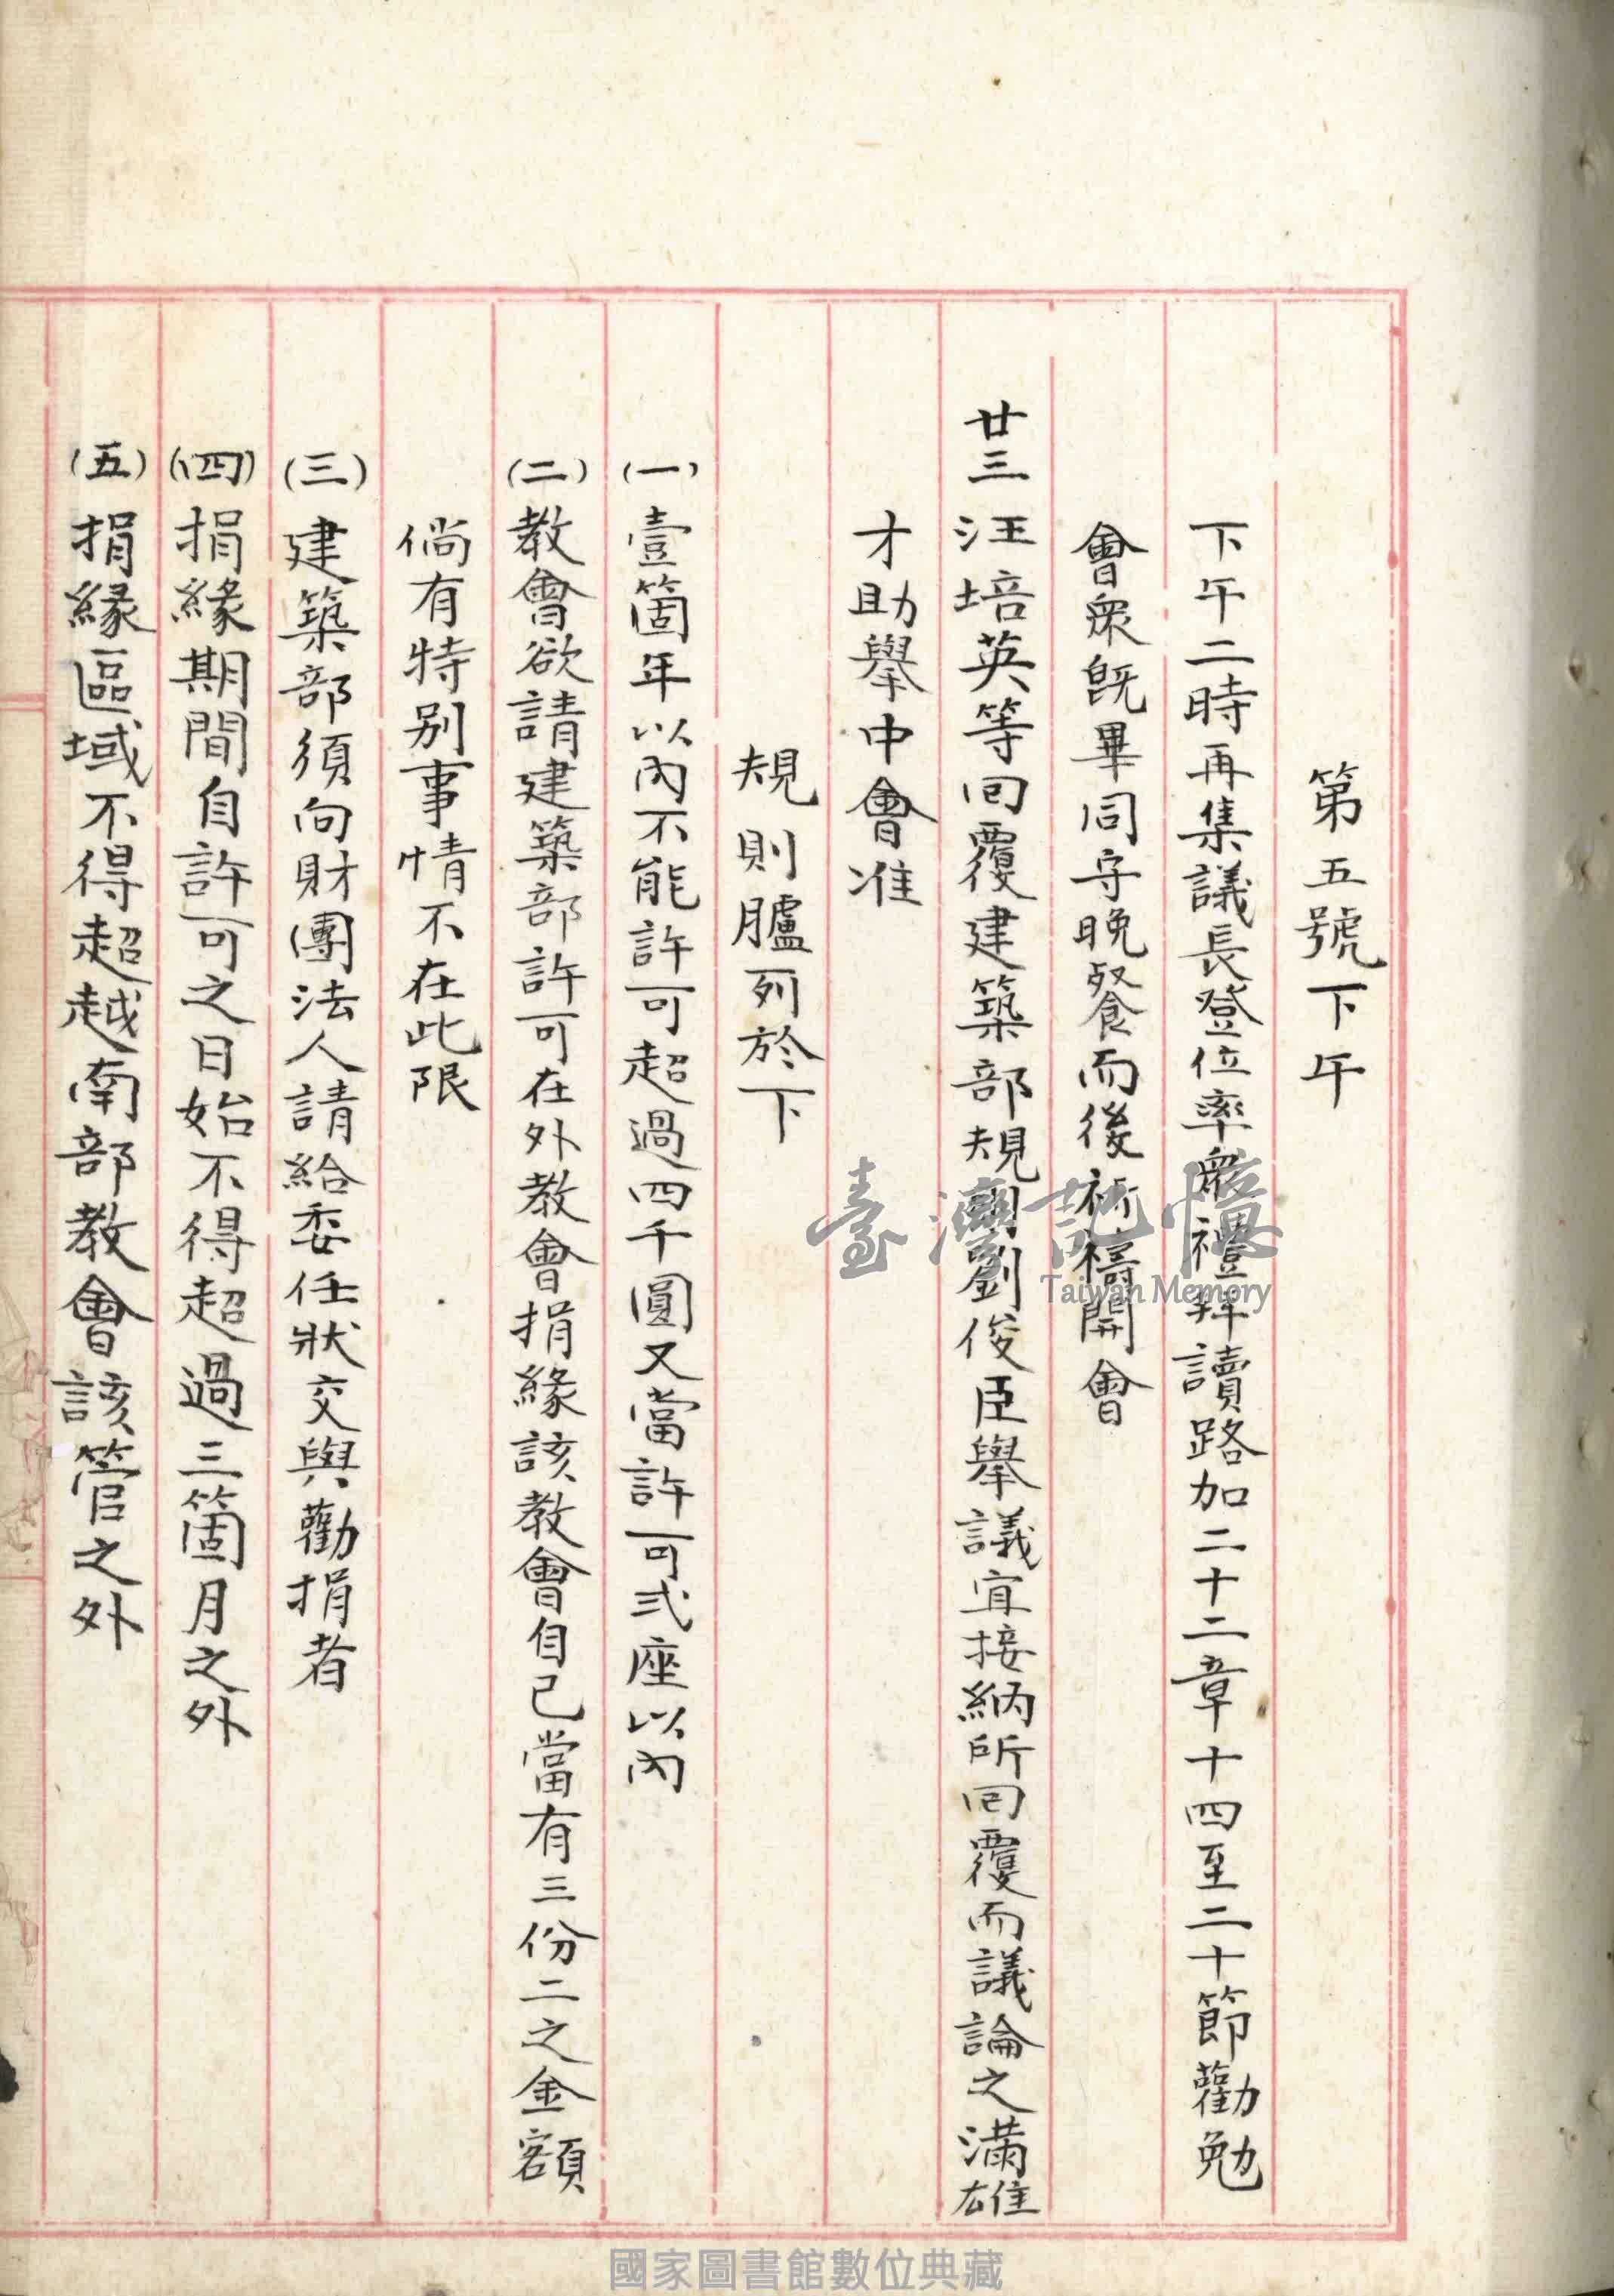 第五號下午
下午二時再集議長登位率衆禮拜讀路加二十二章十四至二十節勸勉
會衆旣畢同守晩餐而後祈禱開會
廿三汪培英等回覆建築部規則劉俊臣舉議宜接納所回覆而議論之滿雄
才助舉中會准
規則臚列於下
(一)壹箇年以內不能許可超過四千圓又當許可弍座以內
(二)教會欲請建築部許可在外教會捐緣該教會自己當有三份二之金額
倘有特別事情不在此限
(三)建築部須向財團法人請給委任狀交與勸捐者
(四)捐緣期間自許可之日始不得超過三箇月之外
(五)捐緣區域不得超越南部教會該管之外
臺灣記憶
Taiwan Memory
國家圖書館數位典藏